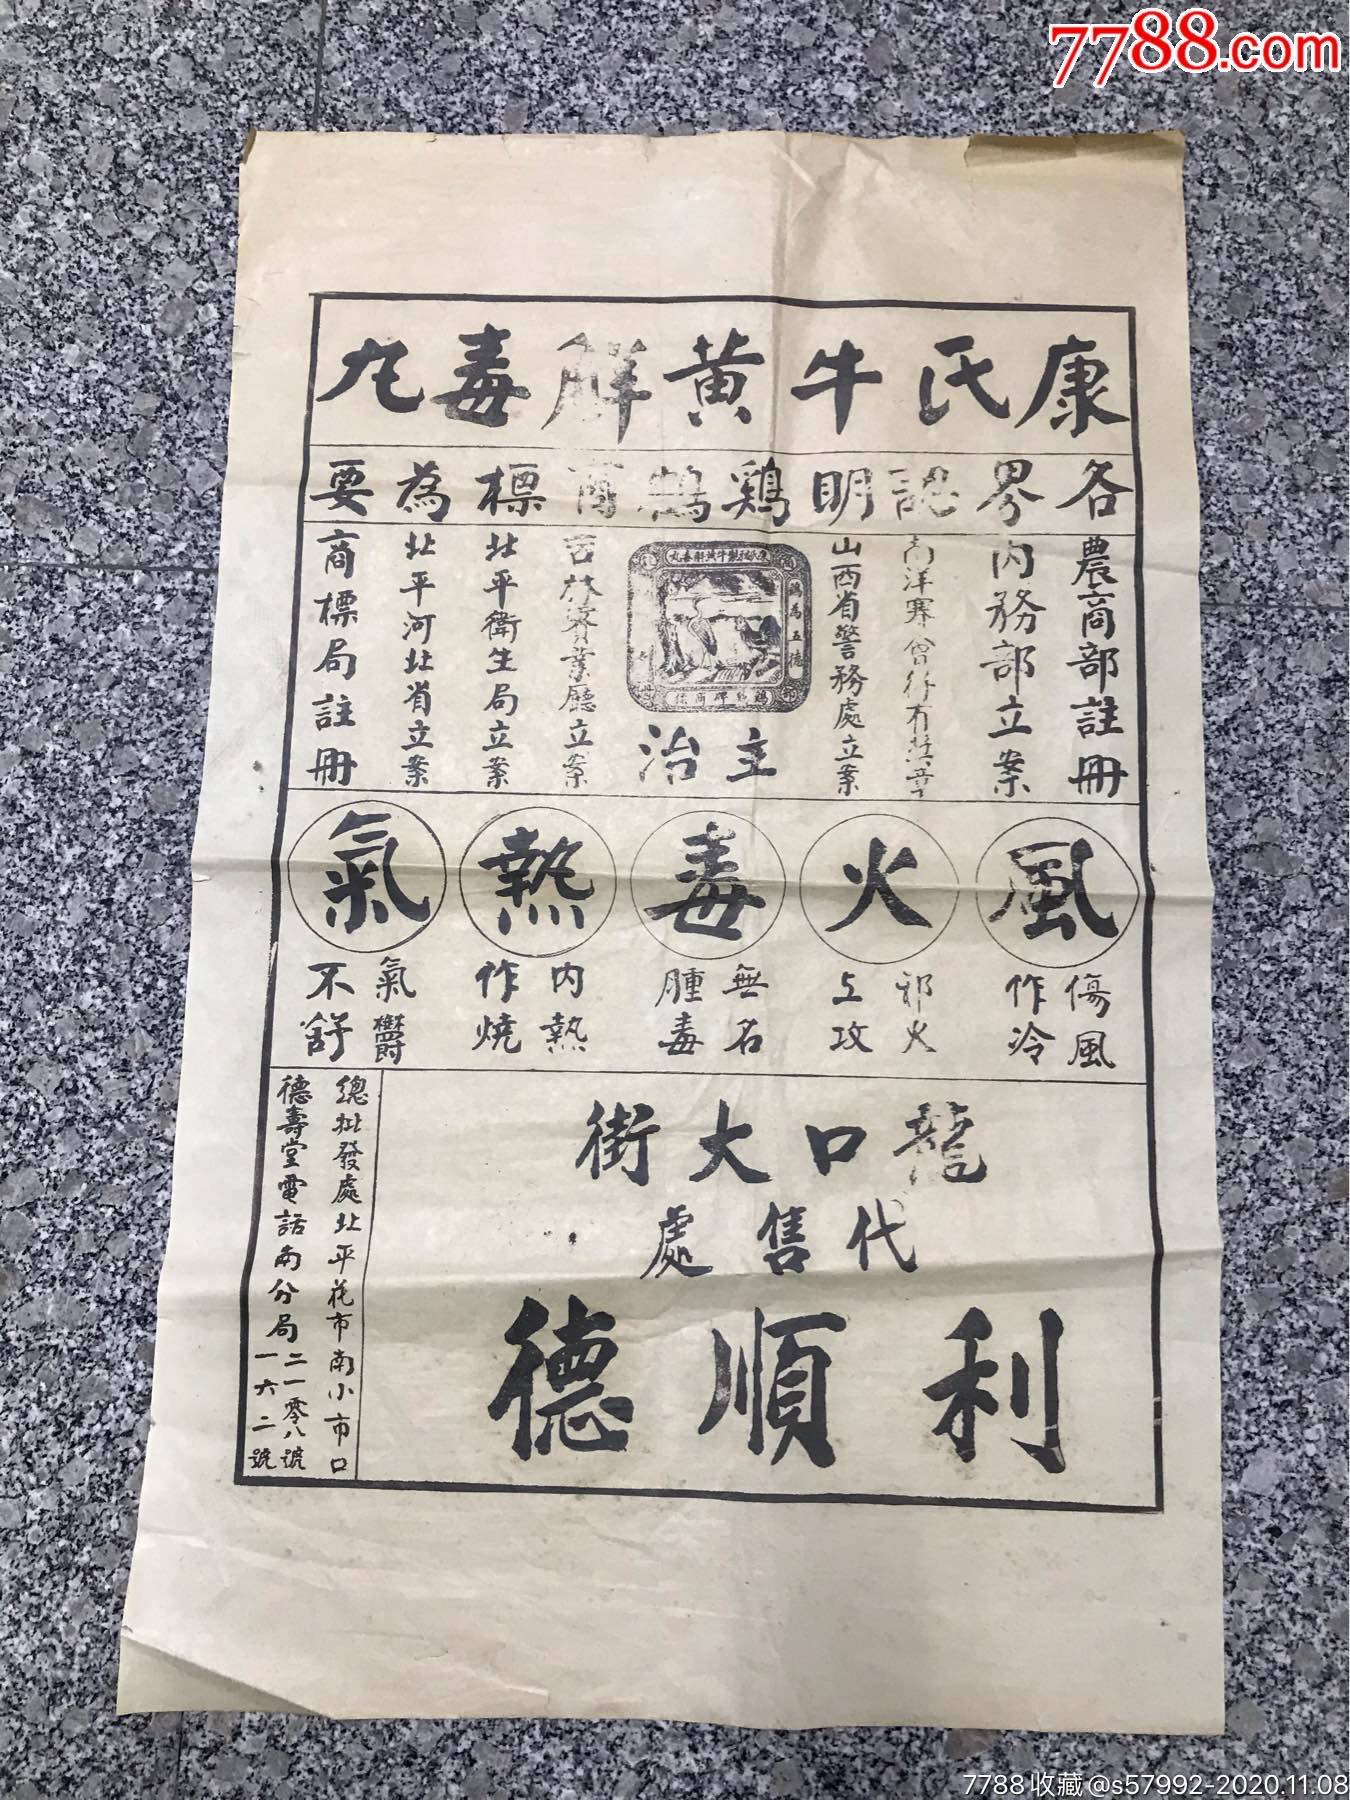 7788.com
康氏牛黄解毒丸
各界認明鷄鶴商標為要
農商部註冊
内務部立案
南洋賽會得有獎章
山西省警務處立案
鷄為五德
主治
吉林實業廳立案
北平衛生局立案
北平河北省立案
商標局註冊
風
火
毒
熱
氣
傷風
作冷
邪火
上攻
無名
腫毒
内熱
作燒
氣鬱
不舒
龍口大街
代售處
利順德
總批發處北平花市南小市口
德壽堂電話南分局二一零八號
一六二號
7788收藏@s57992-2020.11.08